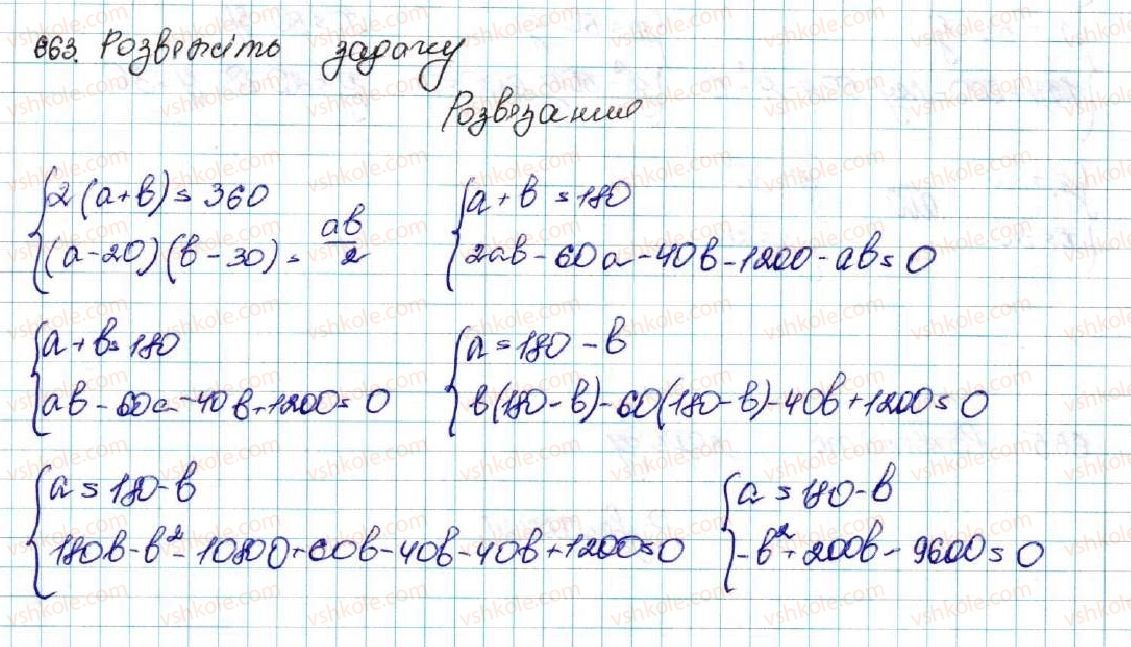 863. Розвяжіть задачу
Розвязання
{2(a+b)=360
(a-20)(b-30)=ab/2
{a+b=180
2ab-60a-40b-1200-ab=0
{a+b=180
ab-60a-40b+1200=0
{a=180-b
b(180-b)-60(180-b)-40b+1200=0
{a=180-b
180b-b²-10800+60b-40b-40b+1200=0
{a=180-b
-b²+200b-9600=0
vshkole.com